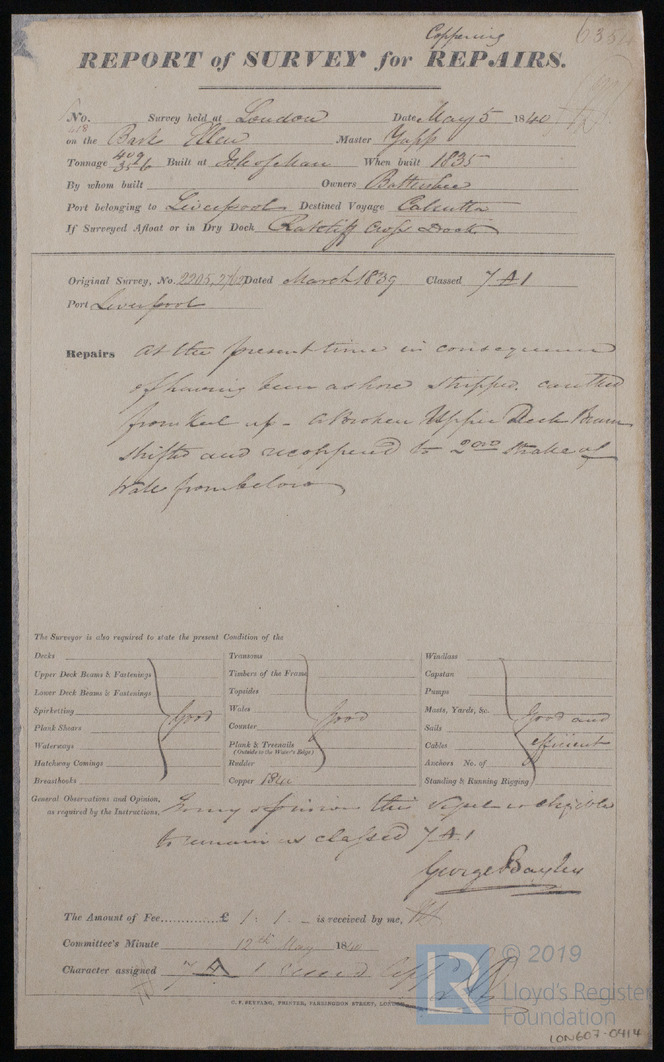 Coppering
REPORT of SURVEY for REPAIRS.
No. Survey held at London Date May 5 1840
on the Bark Ellen Master Yapp
Tonnage 409 356 Built at Isle of Man When built 1835
By whom built Owners
Port belonging to Liverpool Destined Voyage Calcutta
If Surveyed Afloat or in Dry Dock Ratcliff Cross Dock
Original Survey, No. 2205, Dated March 1839 Classed 7 A 1
Port Liverpool
Repairs At the present time in consequence
of having been ashore stripped, caulked
from Keel up - a Broken Upper Deck Beam
shifted and recoppered to 2nd Strake of
Wales from below
The Surveyor is also required to state the present Condition of the
Decks Transoms Windlass
Upper Deck Beams & Fastenings Timbers of the Frame Capstan
Lower Deck Beams & Fastenings Topsides Pumps
Spirketting Good Wales Good Masts, Yards, &c. Good and
Plank Shears Counter Sails efficient
Waterways Plank & Treenails Cables
(Outside to the Water's Edge)
Hatchway Comings Rudder Anchors No. of
Breasthooks Copper 1840 Standing & Running Rigging
General Observations and Opinion, In my opinion this Vessel is eligible
as required by the Instructions, to remain as classed 7 A 1
George Bayley
The Amount of Fee............£ 1 . 1 . - is received by me,
Committee's Minute 12th May 1840
Character assigned 7 A 1
C. F. SEYFANG, PRINTER, FARRINGDON STREET, LONDON
LR © 2019
Lloyd's Register
Foundation
LON607-0414